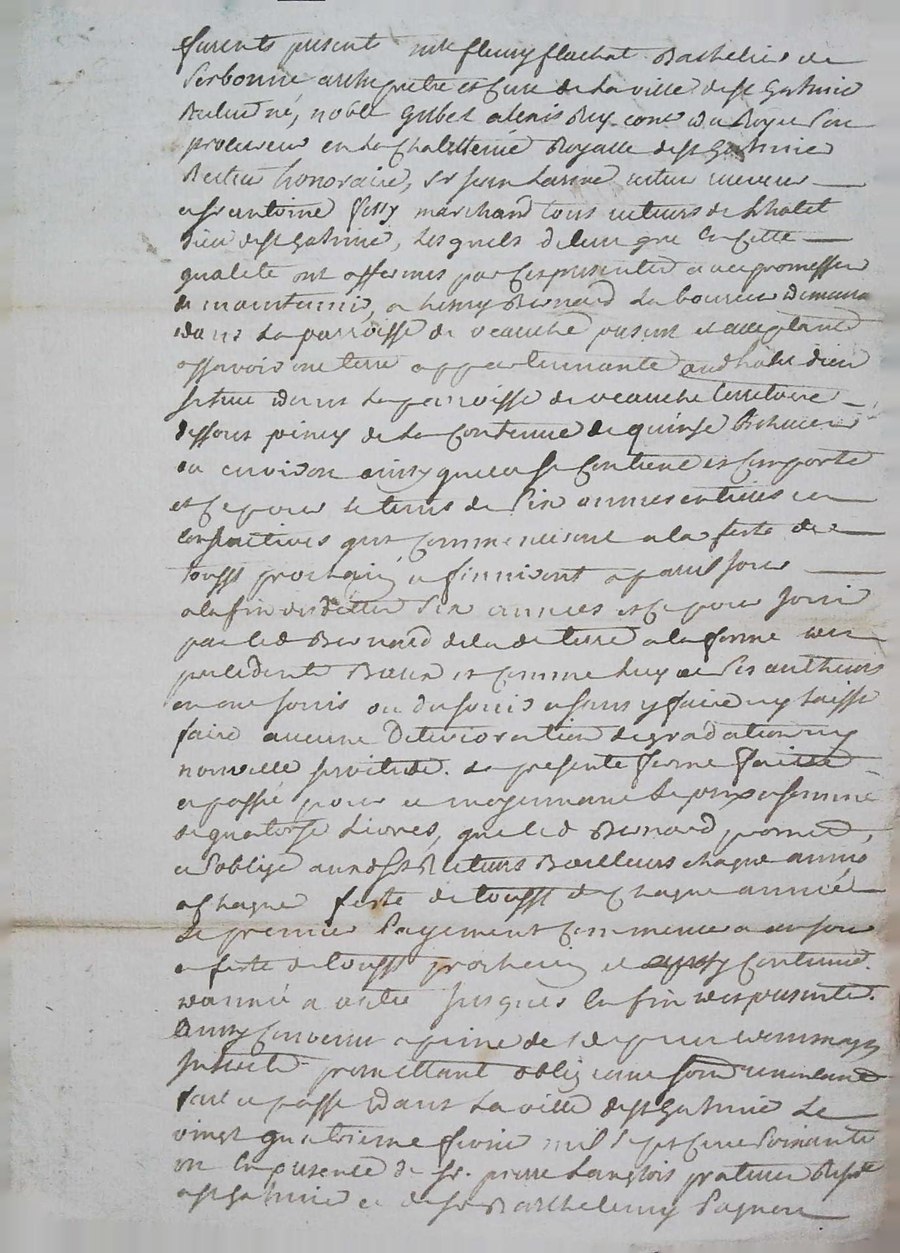 furents presents mre fleury flachat Bachelier de
Sorbonne archipretre et Cure de la ville de st Galmier
Recteur né, noble alexis con du Roy Son
procureur en la Chatellenie Royalle de st Galmier
Recteur honoraire, Sr Jean
et Sr antoine fessy marchand tous recteurs de l'hotel
Dieu de st Galmier, lesquels de leur gré en Cette
qualité ont affermés par Ces presentes avec promesse
de maintenir, a Bernard laboureur demeurant
dans la parroisse de veauche present et acceptant
assavoir une terre appartennante audt hotel dieu
située dans la parroisse de veauche territoire
dessous de la Contenue de quinze
ou environ ainsy quelle se Contient et Comporte
et Ce pour le tems de Six années entieres et
Consecutives qui Commenceront a la feste de
toussts prochain et finniront a pareil Jour
a la fin desdittes Six années et Ce pour Jouir
par led Bernard de la de terre a la forme des
precedents Baux et Comme luy et Ses autheurs
en ont Jouis ou du Jouir sans y faire ny laisser
faire aucune Deterioration degradation ny
nouvelle servitude. la presente ferme faitte
et passé pour et moyennant le prix et somme
de quatorze livres, que led Bernard promet,
et S'oblige auxdst Recteurs Bailleurs chaque année
a Chaque feste de toussts de Chaque année
le premier payement Commencera au jour
et feste de toussts prochain et Continuer
d'année a autre Jusques la fin des presentes.
ainsy Convenu a peine de tous depens dommages
Interets promettant oblig renonceant
fait et passé dans la ville de st Galmier le
vingt quatrieme fevrier mil Sept Cent Soixante
en la presence de Sr. pierre Langlois praticien
a st Galmier et de Sr Barthelemy Pagnon